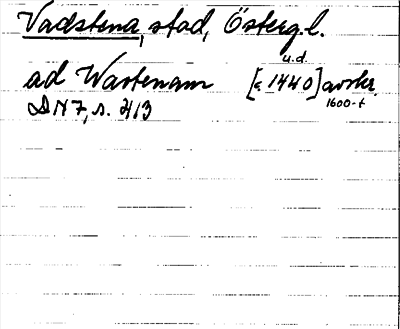 Vadstena, stad, Österg.l.
u.d.
ad Wastenam [c. 1440] avskr.
1600-t
DN 7, s. 413